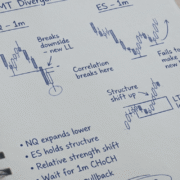 MT Divergence
- 1m
ES - 1m
Breaks
downside
- new LL
Correlation
breaks here
Fails to
make
new
Structure
shift up
• NQ expands lower
• ES holds structure
• Relative strength shift
• Wait for 1m CHoCH
pullback